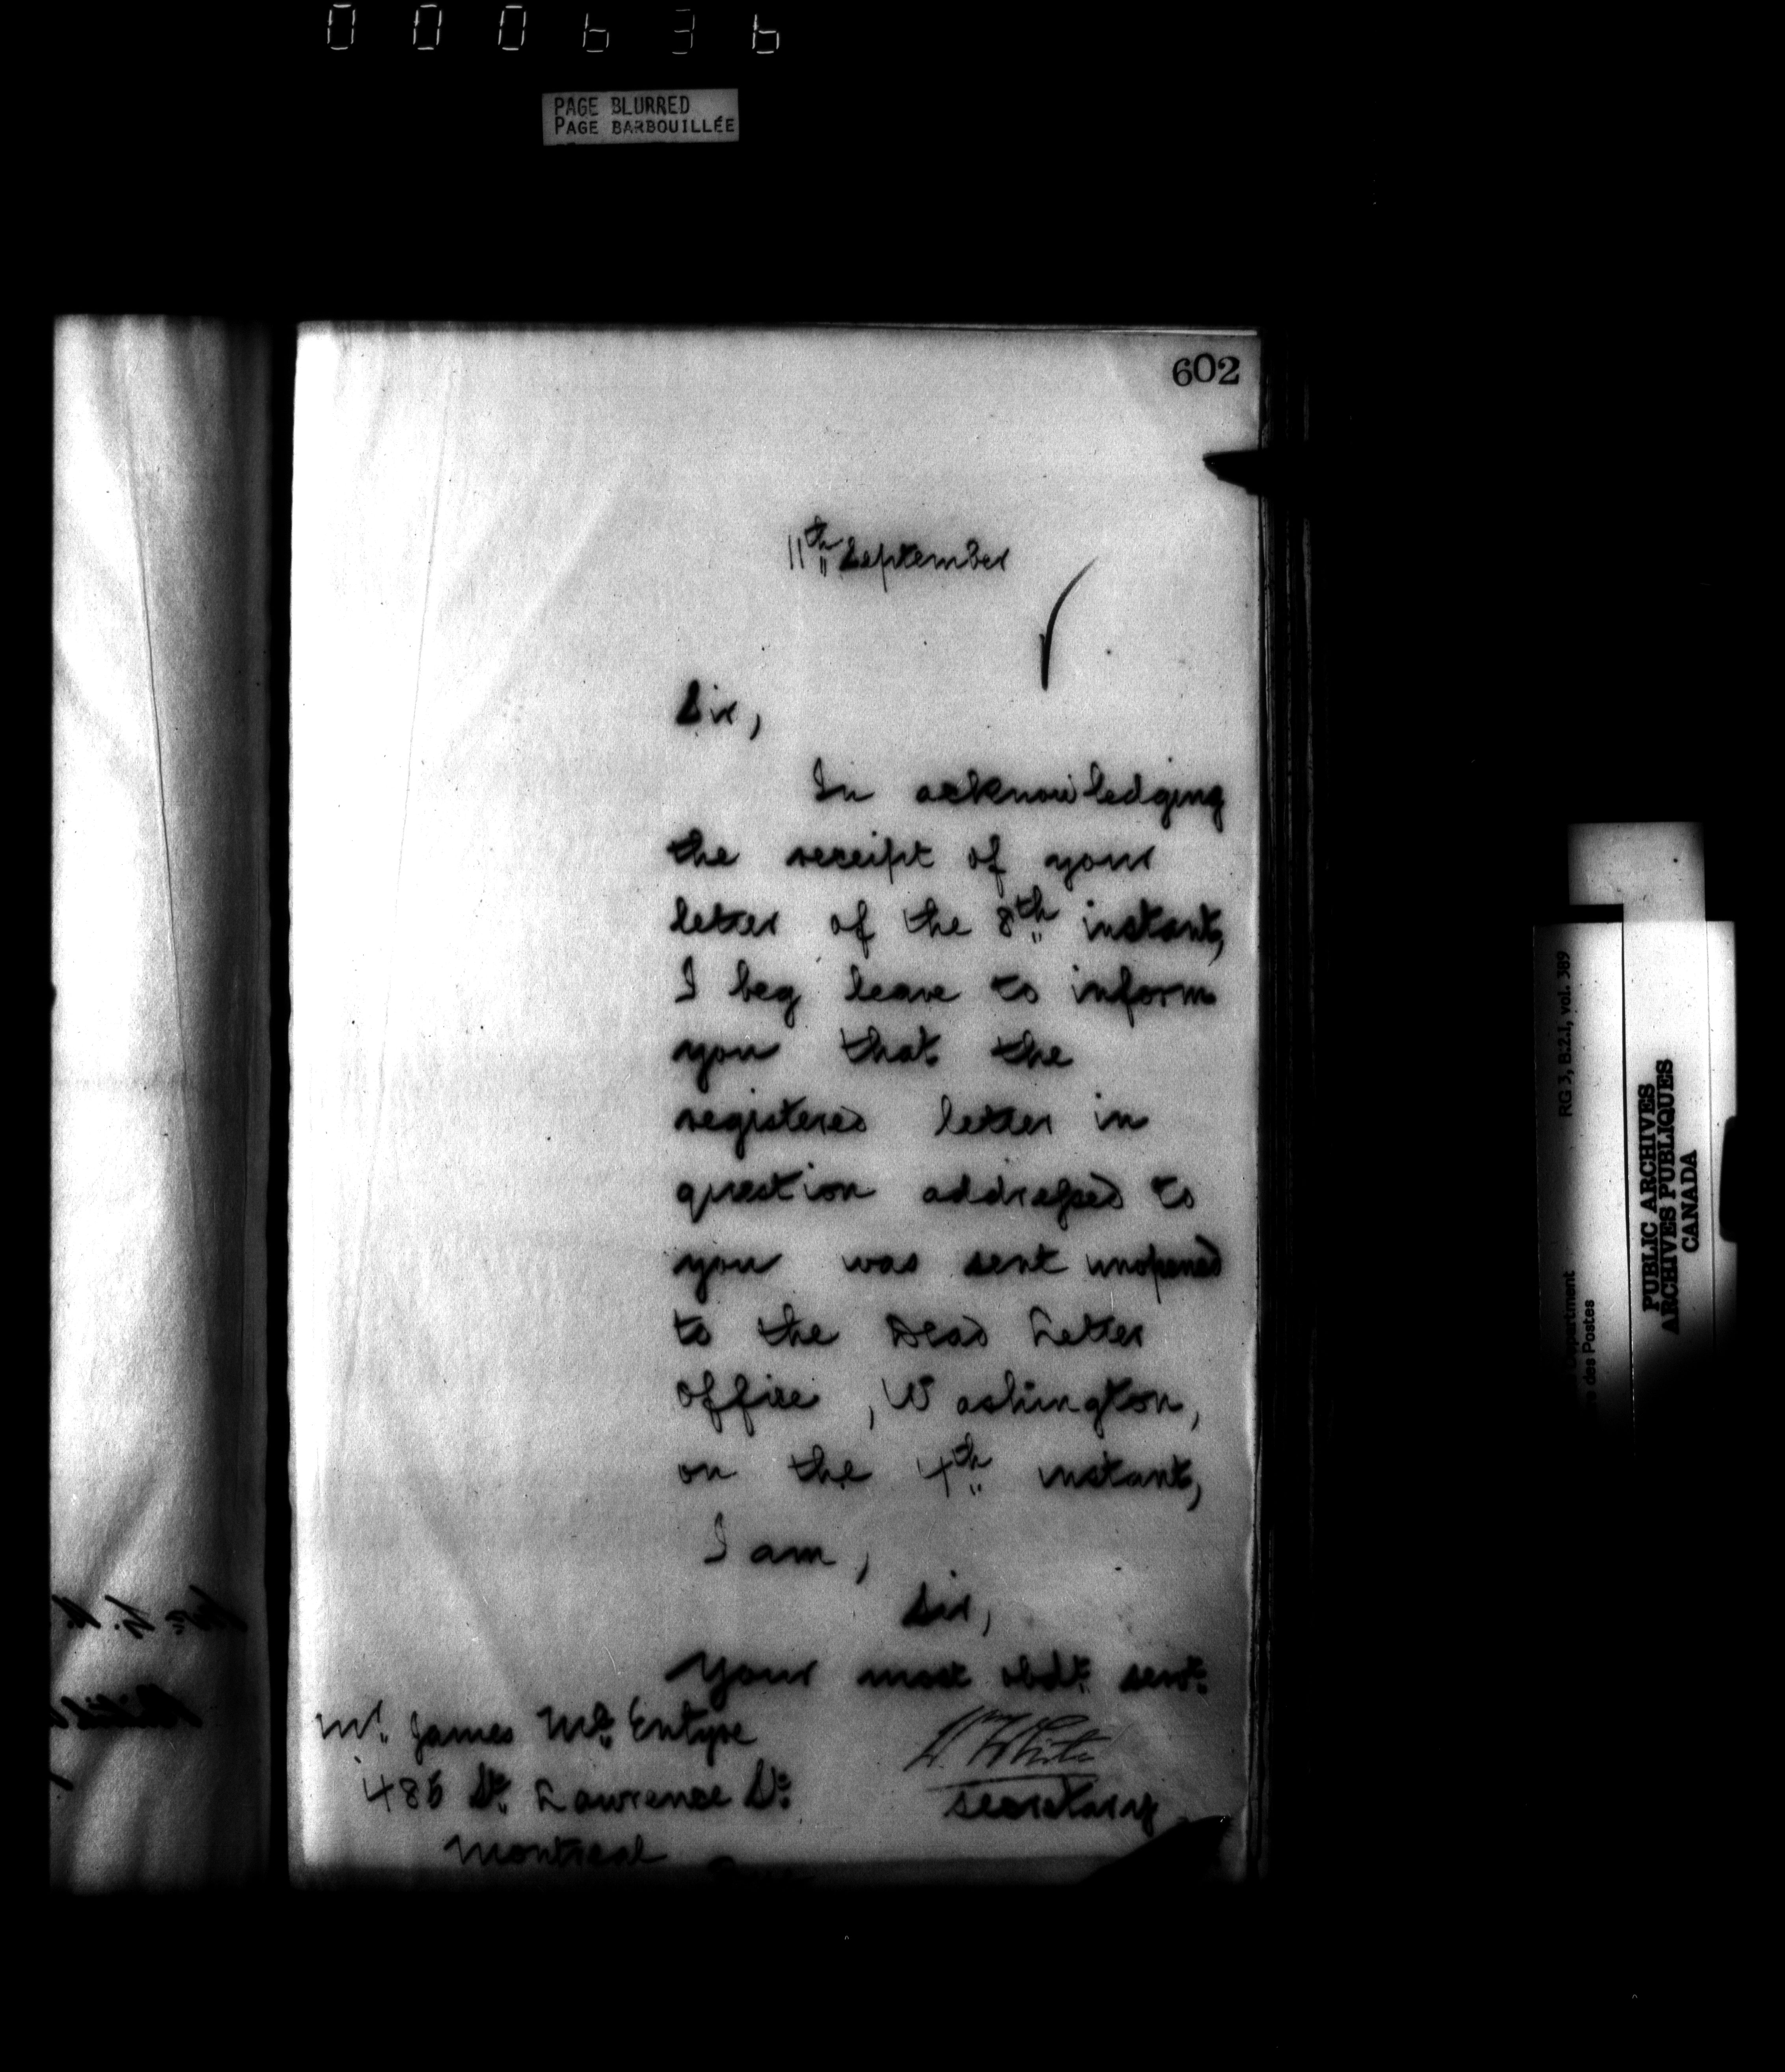 000636
PAGE BLURRED
PAGE BARBOUILLÉE
602
11th September
Sir,
In acknowledging
the receipt of your
letter of the 8th instant,
I beg leave to inform
you that the
registered letter in
question addressed to
you was sent unopened
to the Dead Letter
Office, Washington,
on the 4th instant,
I am,
Sir,
Your most obdt. servt.
W. White
Secretary
Mr. James McEntyre
485 St. Lawrence St.
Montreal
RG 3, B:2.1, vol. 389
des Postes
PUBLIC ARCHIVES
ARCHIVES PUBLIQUES
CANADA